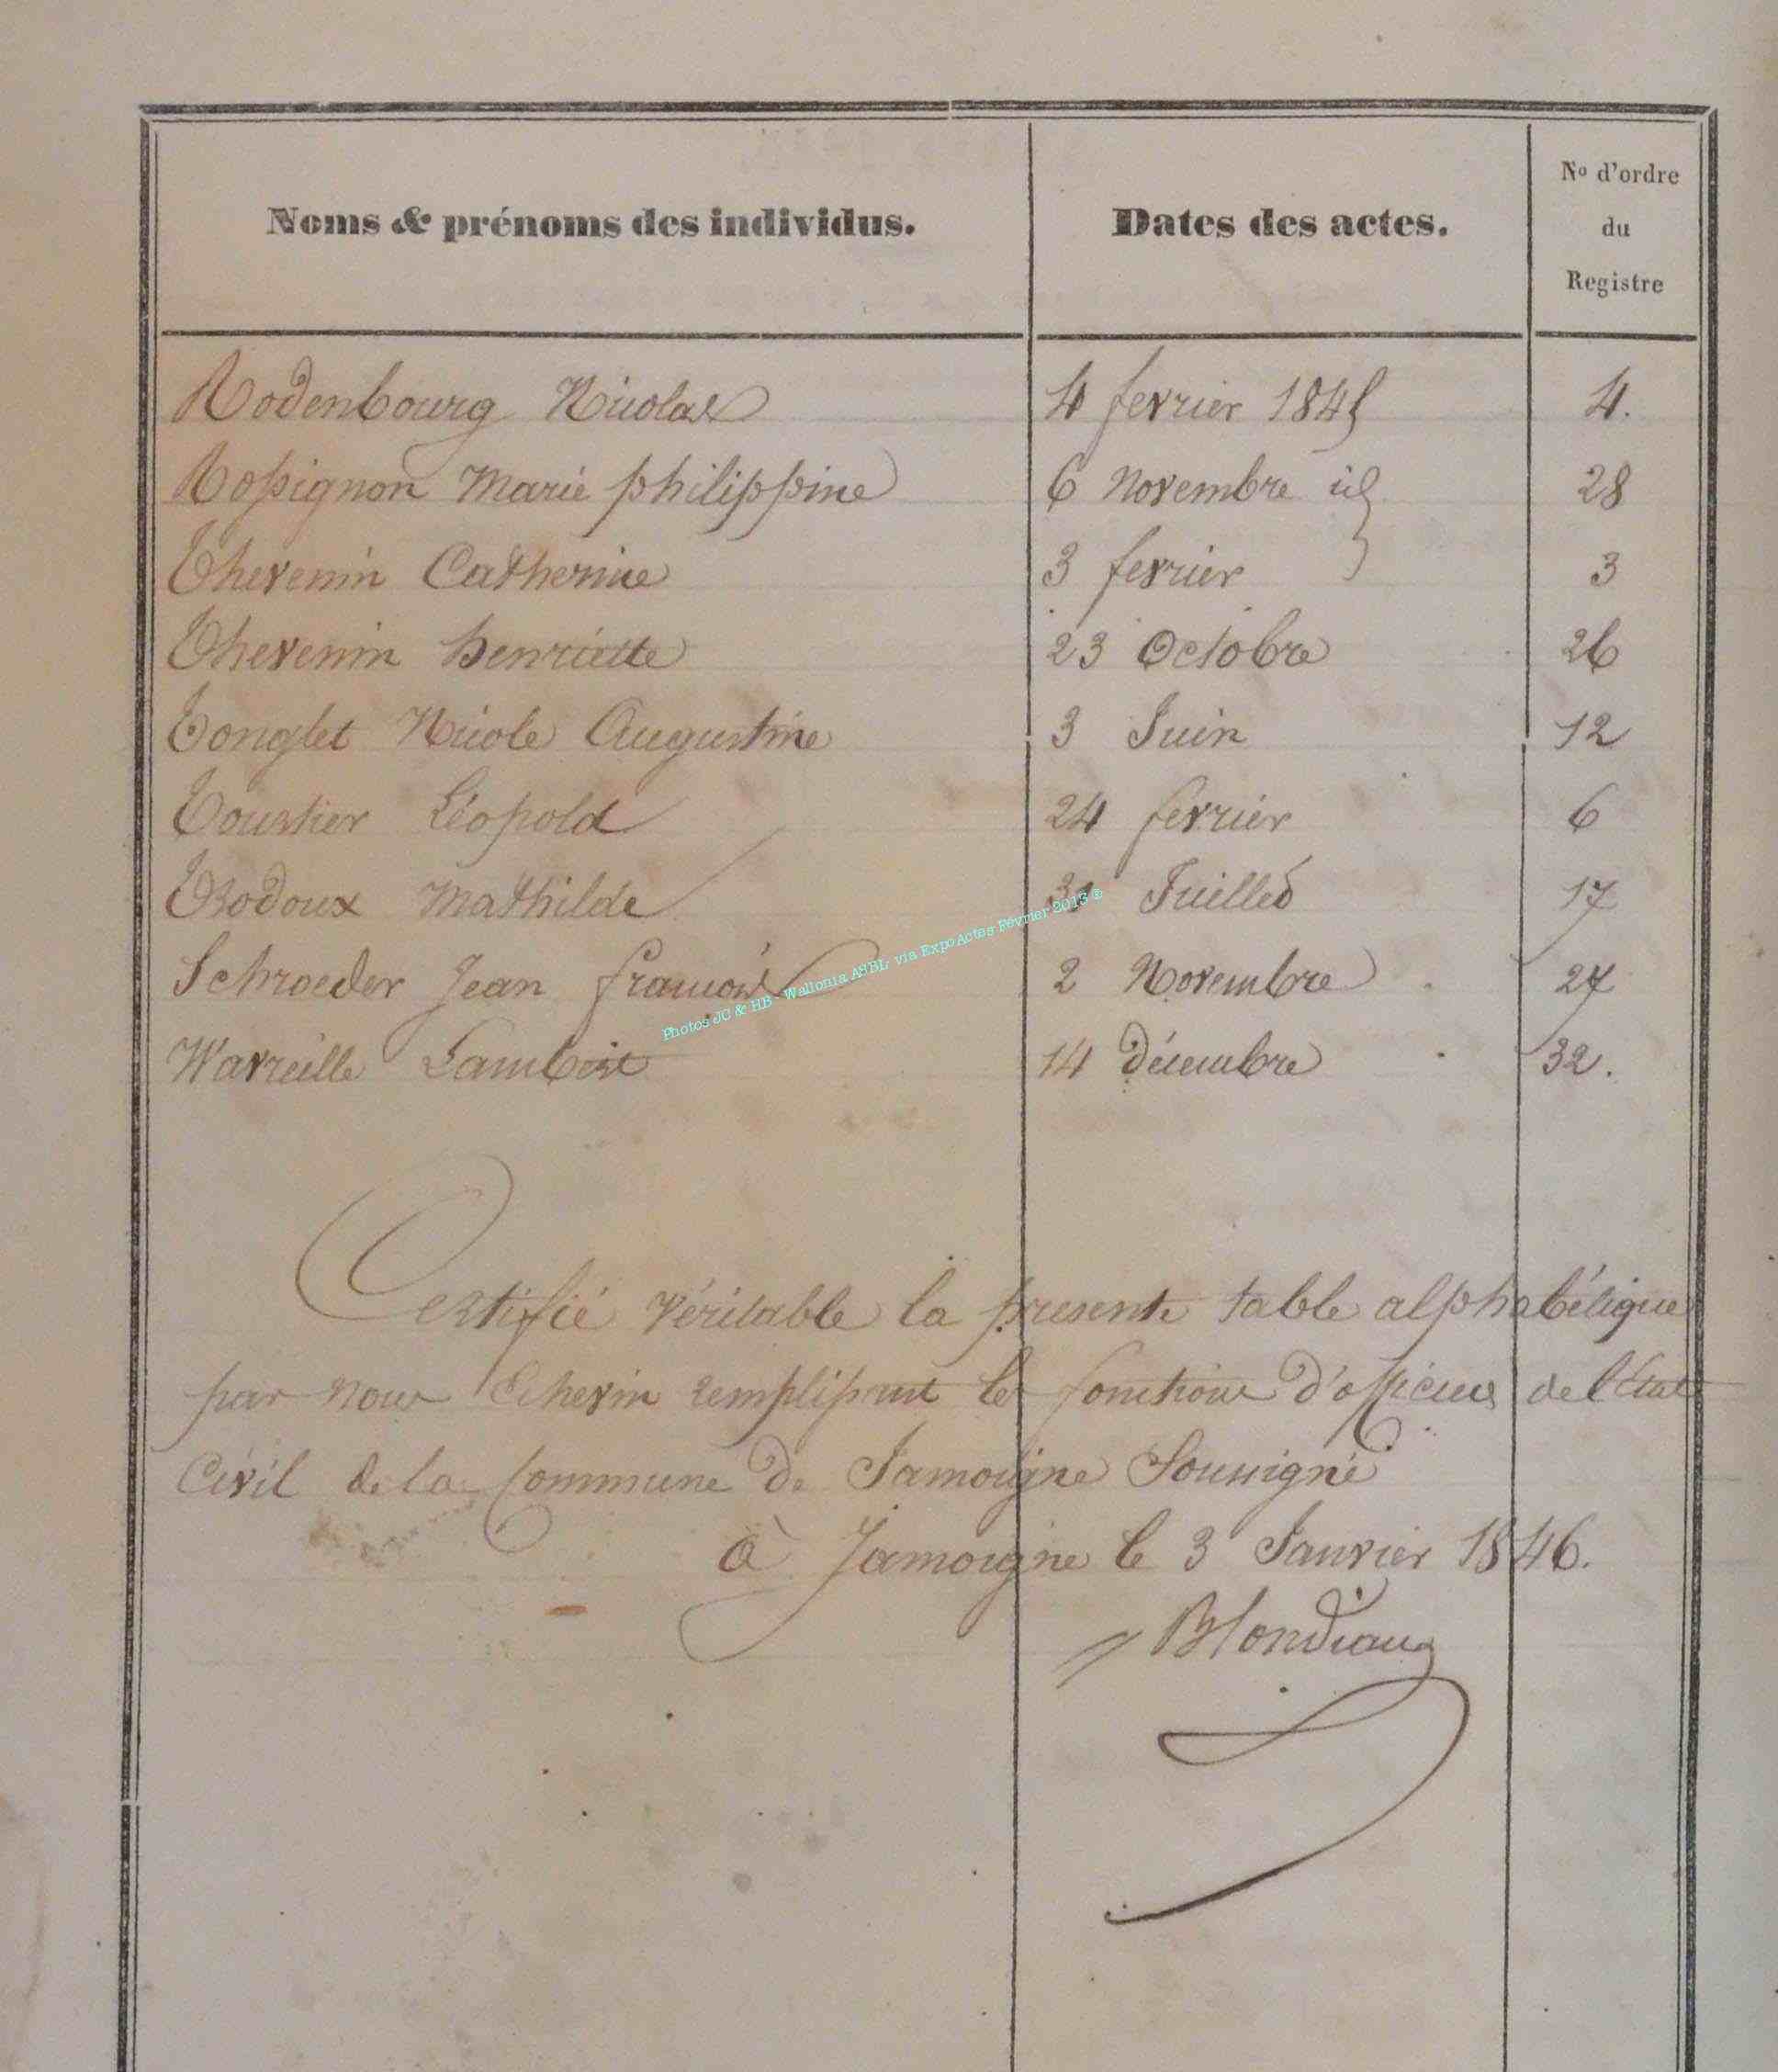 Noms & prénoms des individus. Dates des actes. No d'ordre du Registre
Rodenbourg Nicolas 4 fevrier 1845 4.
Rossignon Marie philippine 6 Novembre id 28
Thevenin Catherine 3 fevrier 3
Thevenin henriette 23 Octobre 26
Tonglet Nicole Augustine 3 Juin 12
Toustier Léopold 24 fevrier 6
Mathilde 31 Juillet 17
Schroeder Jean francois 2 Novembre 27
Lambert 14 décembre 32.
Certifié véritable la presente table alphabétique
par nous Echevin remplissant les fonctions d'officier de l'état
Civil de la Commune de Jamoigne Soussigné
à Jamoigne le 3 Janvier 1846.
Blondiaux
Photos JC & HB - Wallonia ASBL via ExpoActes Février 2013 ©